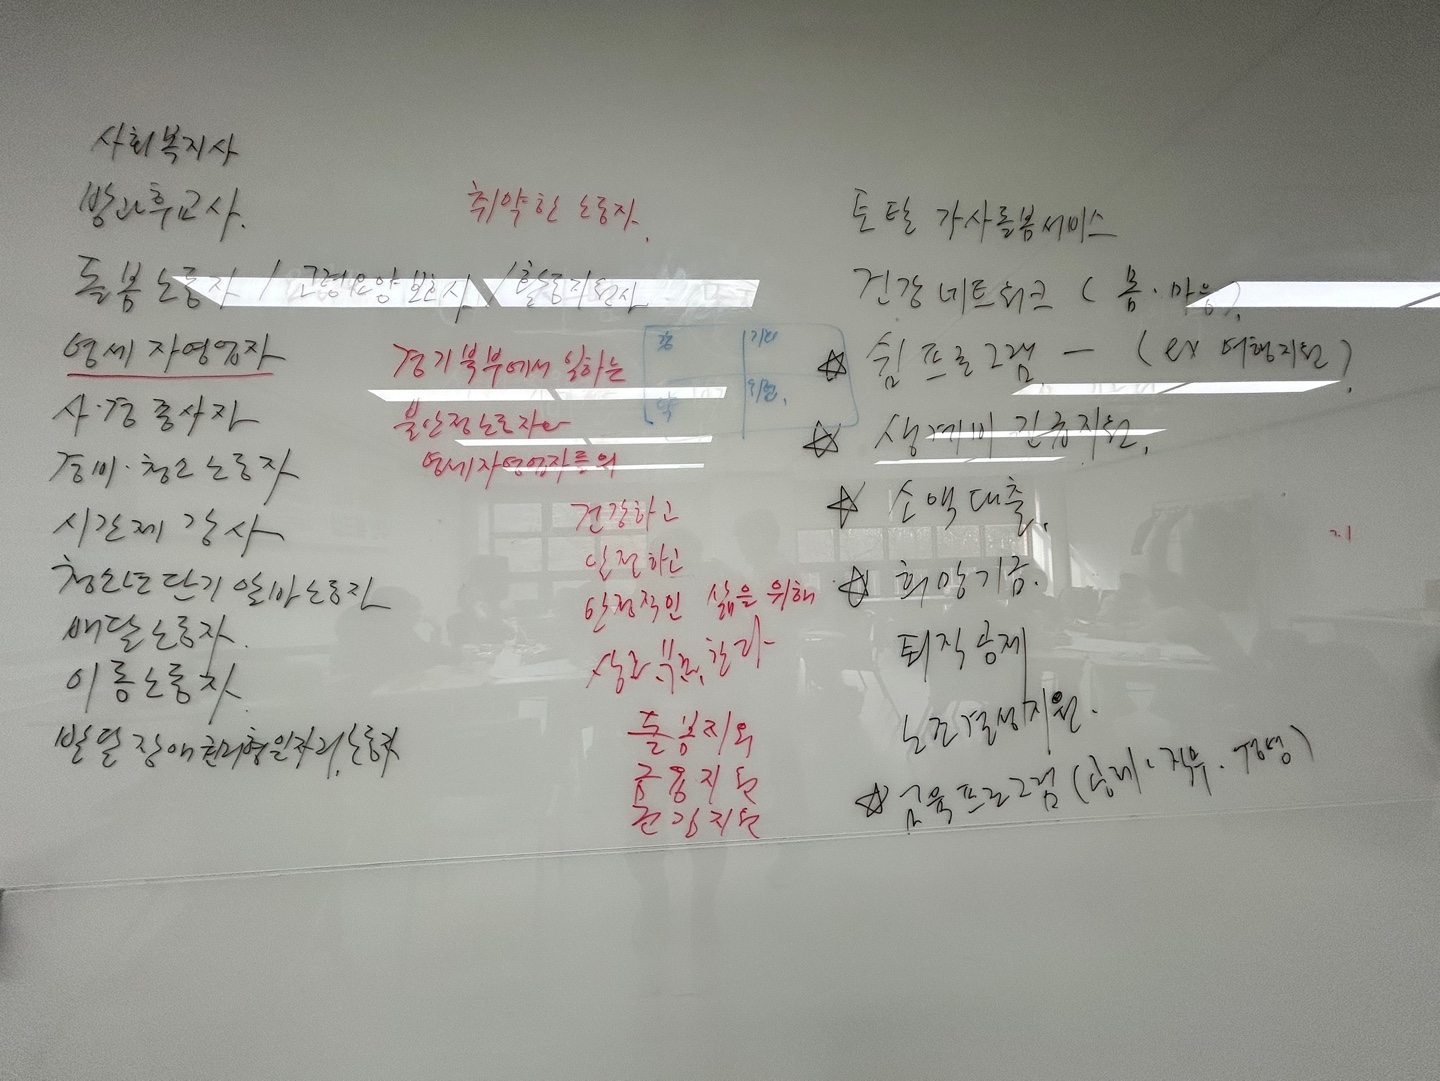 사회복지사
방과후교사.
돌봄노동자 / 고령요양보호사 / 활동지원사
영세 자영업자
사·경 종사자
경비·청소노동자
시간제 강사
청소년 단기알바노동자
배달노동자.
이동노동자.
발달장애권리형일자리노동자
취약한 노동자.
경기북부에서 일하는
불안정노동자와
영세자영업자들의
건강하고
안전하고
안정적인 삶을 위해
상호부조한다
돌봄지원
금융지원
건강지원
강 기회
약 위협.
토탈 가사돌봄서비스
건강네트워크 (몸·마음).
☆ 쉼프로그램 - (ex 여행지원).
☆ 생계비 긴급지원.
☆ 소액대출.
☆ 희망기금.
퇴직공제
노조결성지원.
☆ 교육프로그램 (공제·직무·경영)